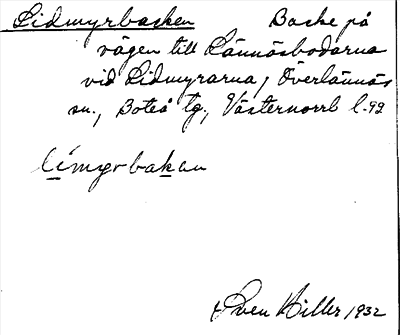 Lidmyrbacken Backe på
vägen till Lännäsbodarna
vid Lidmyrarna, Överlännäs
sn., Boteå tg., Västernorrl l. 92
límyrbakan
Sven Hiller 1932